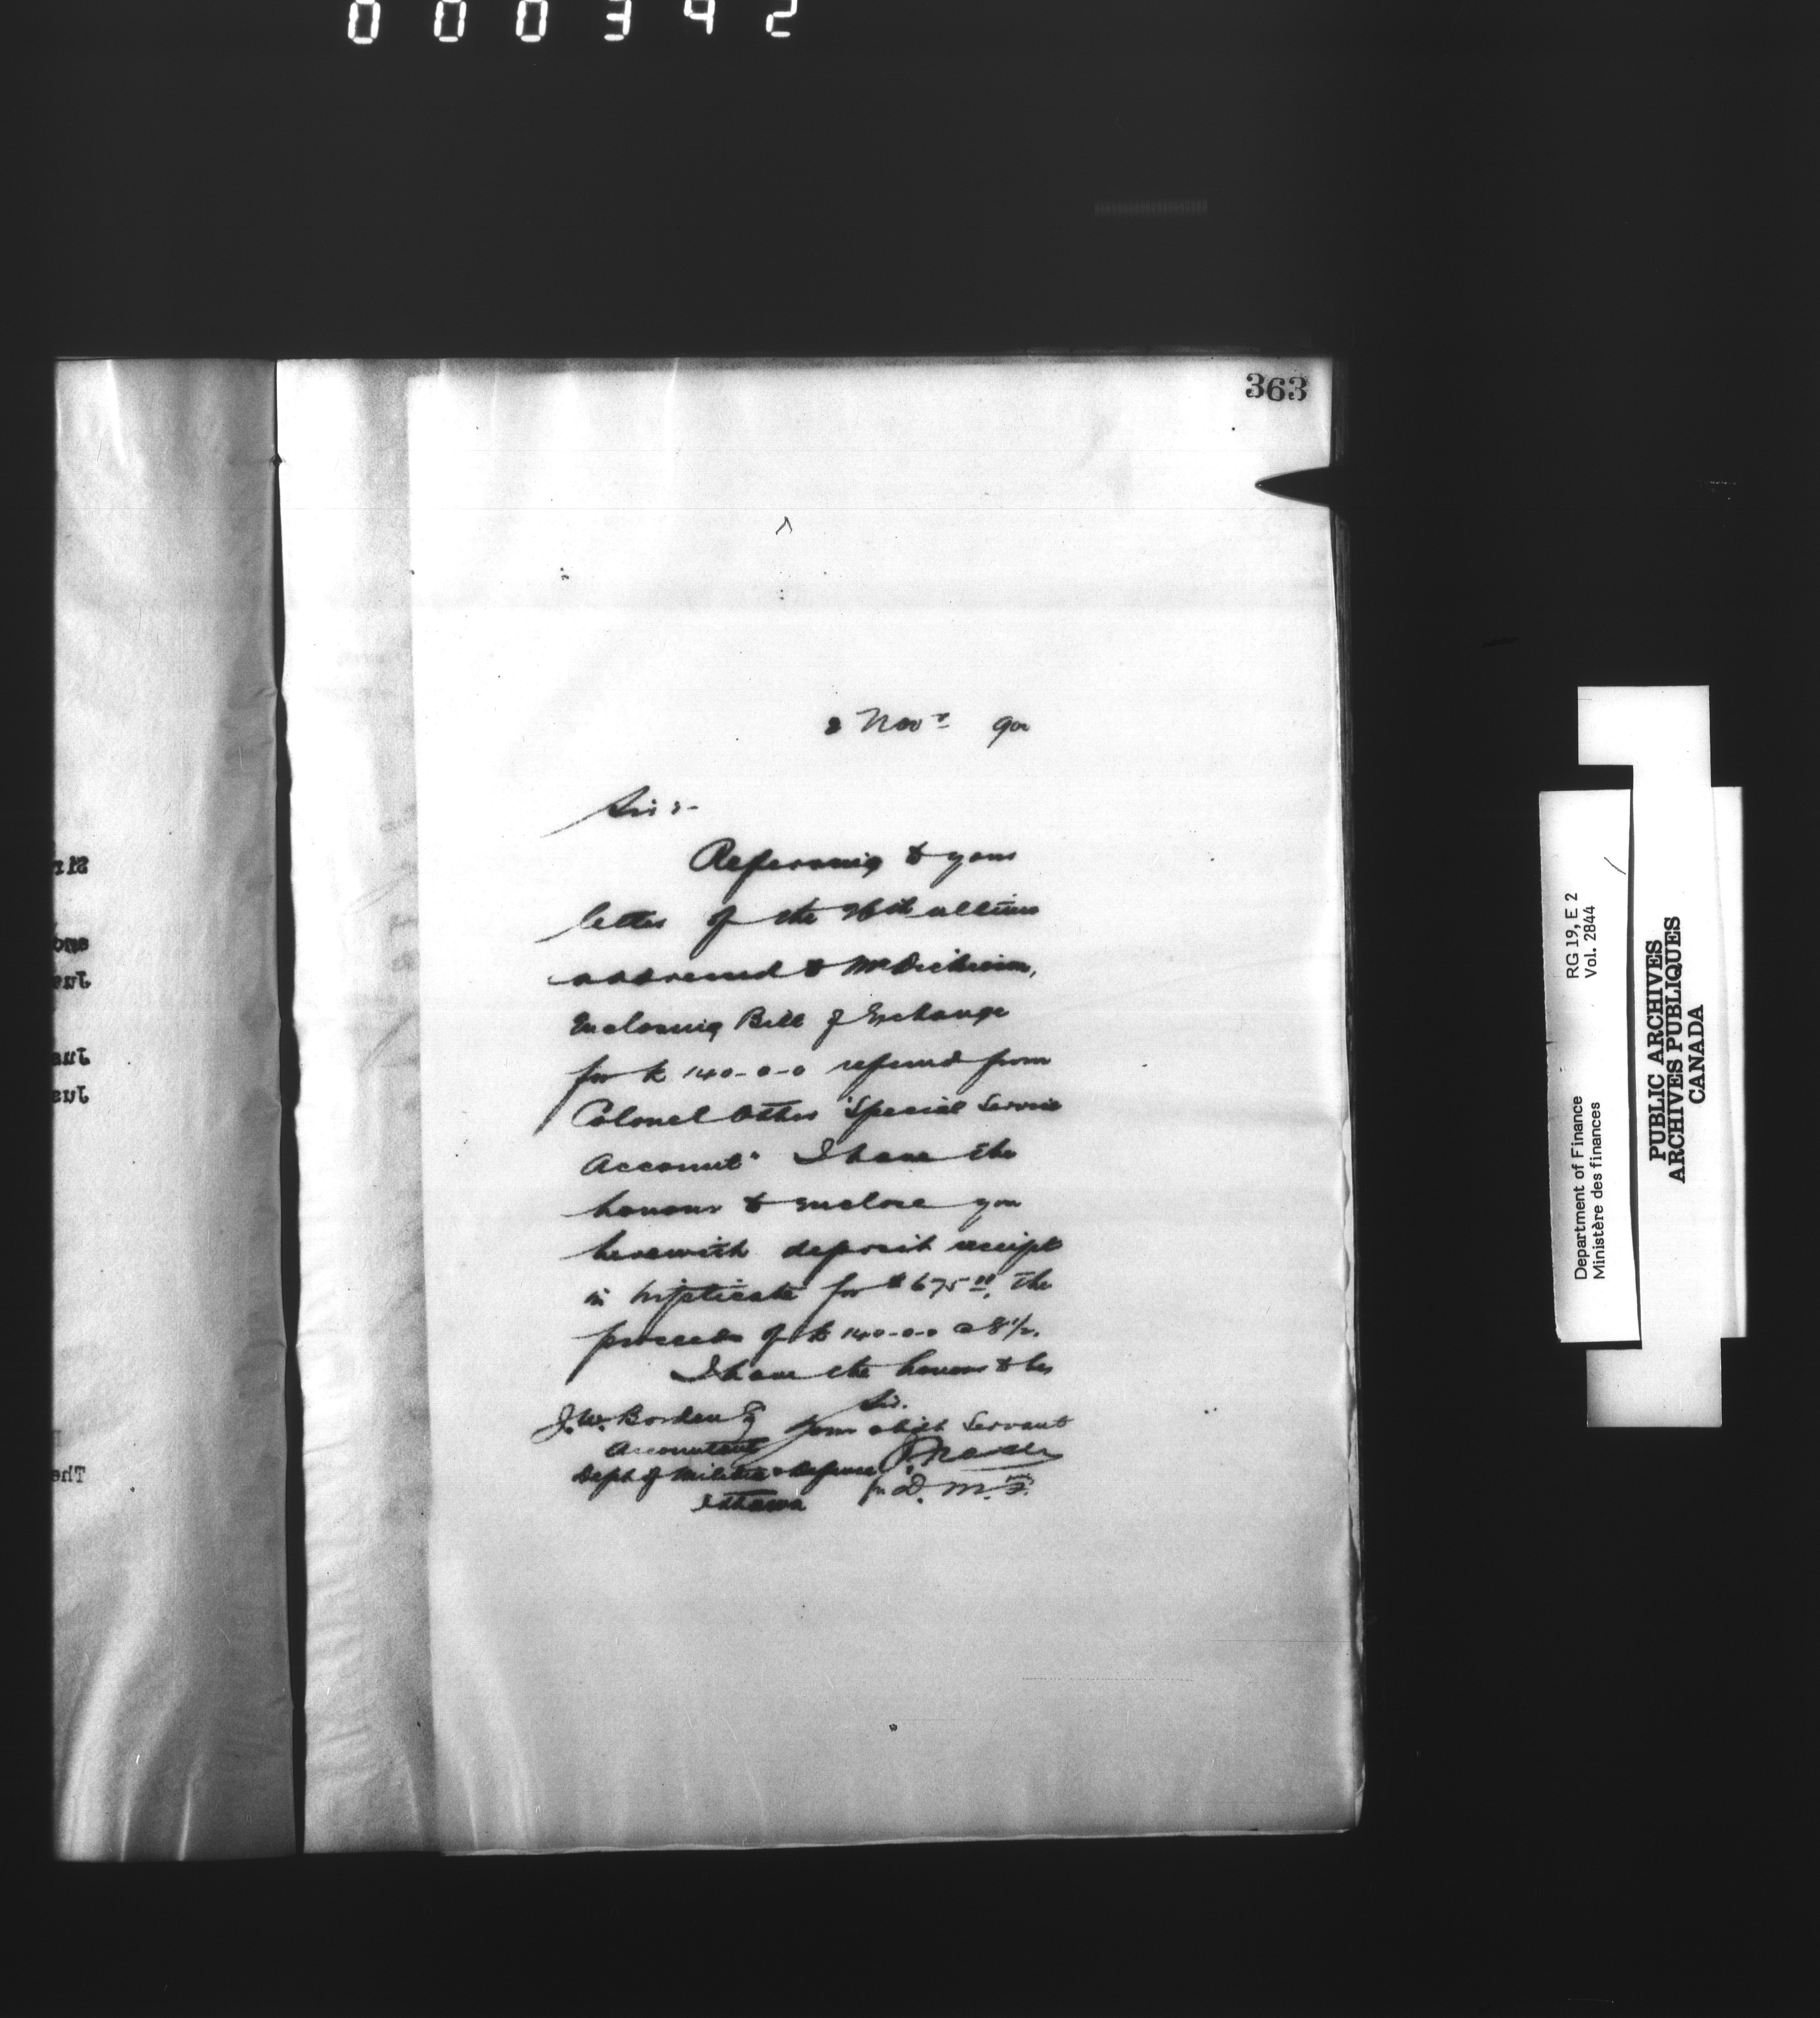 000342
363
2 Novr 900
Sir :-
Referring to your
letter of the 26th ultimo
addressed to Mr Dickieson,
Enclosing Bill of Exchange
for £ 140-0-0 refund from
Colonel Otter "Special Service
Account" I have the
honour to enclose you
herewith deposit receipt
in triplicate for $675.00, the
proceeds of £ 140-0-0 @ 8 1/2.
I have the honour to be
Sir.
Your obdt Servant
for D. M. F.
J. W. Borden Esq
Accountant
Dept of Militia & Defence
Ottawa
Department of Finance RG 19, E 2
Ministère des finances Vol. 2844
PUBLIC ARCHIVES
ARCHIVES PUBLIQUES
CANADA